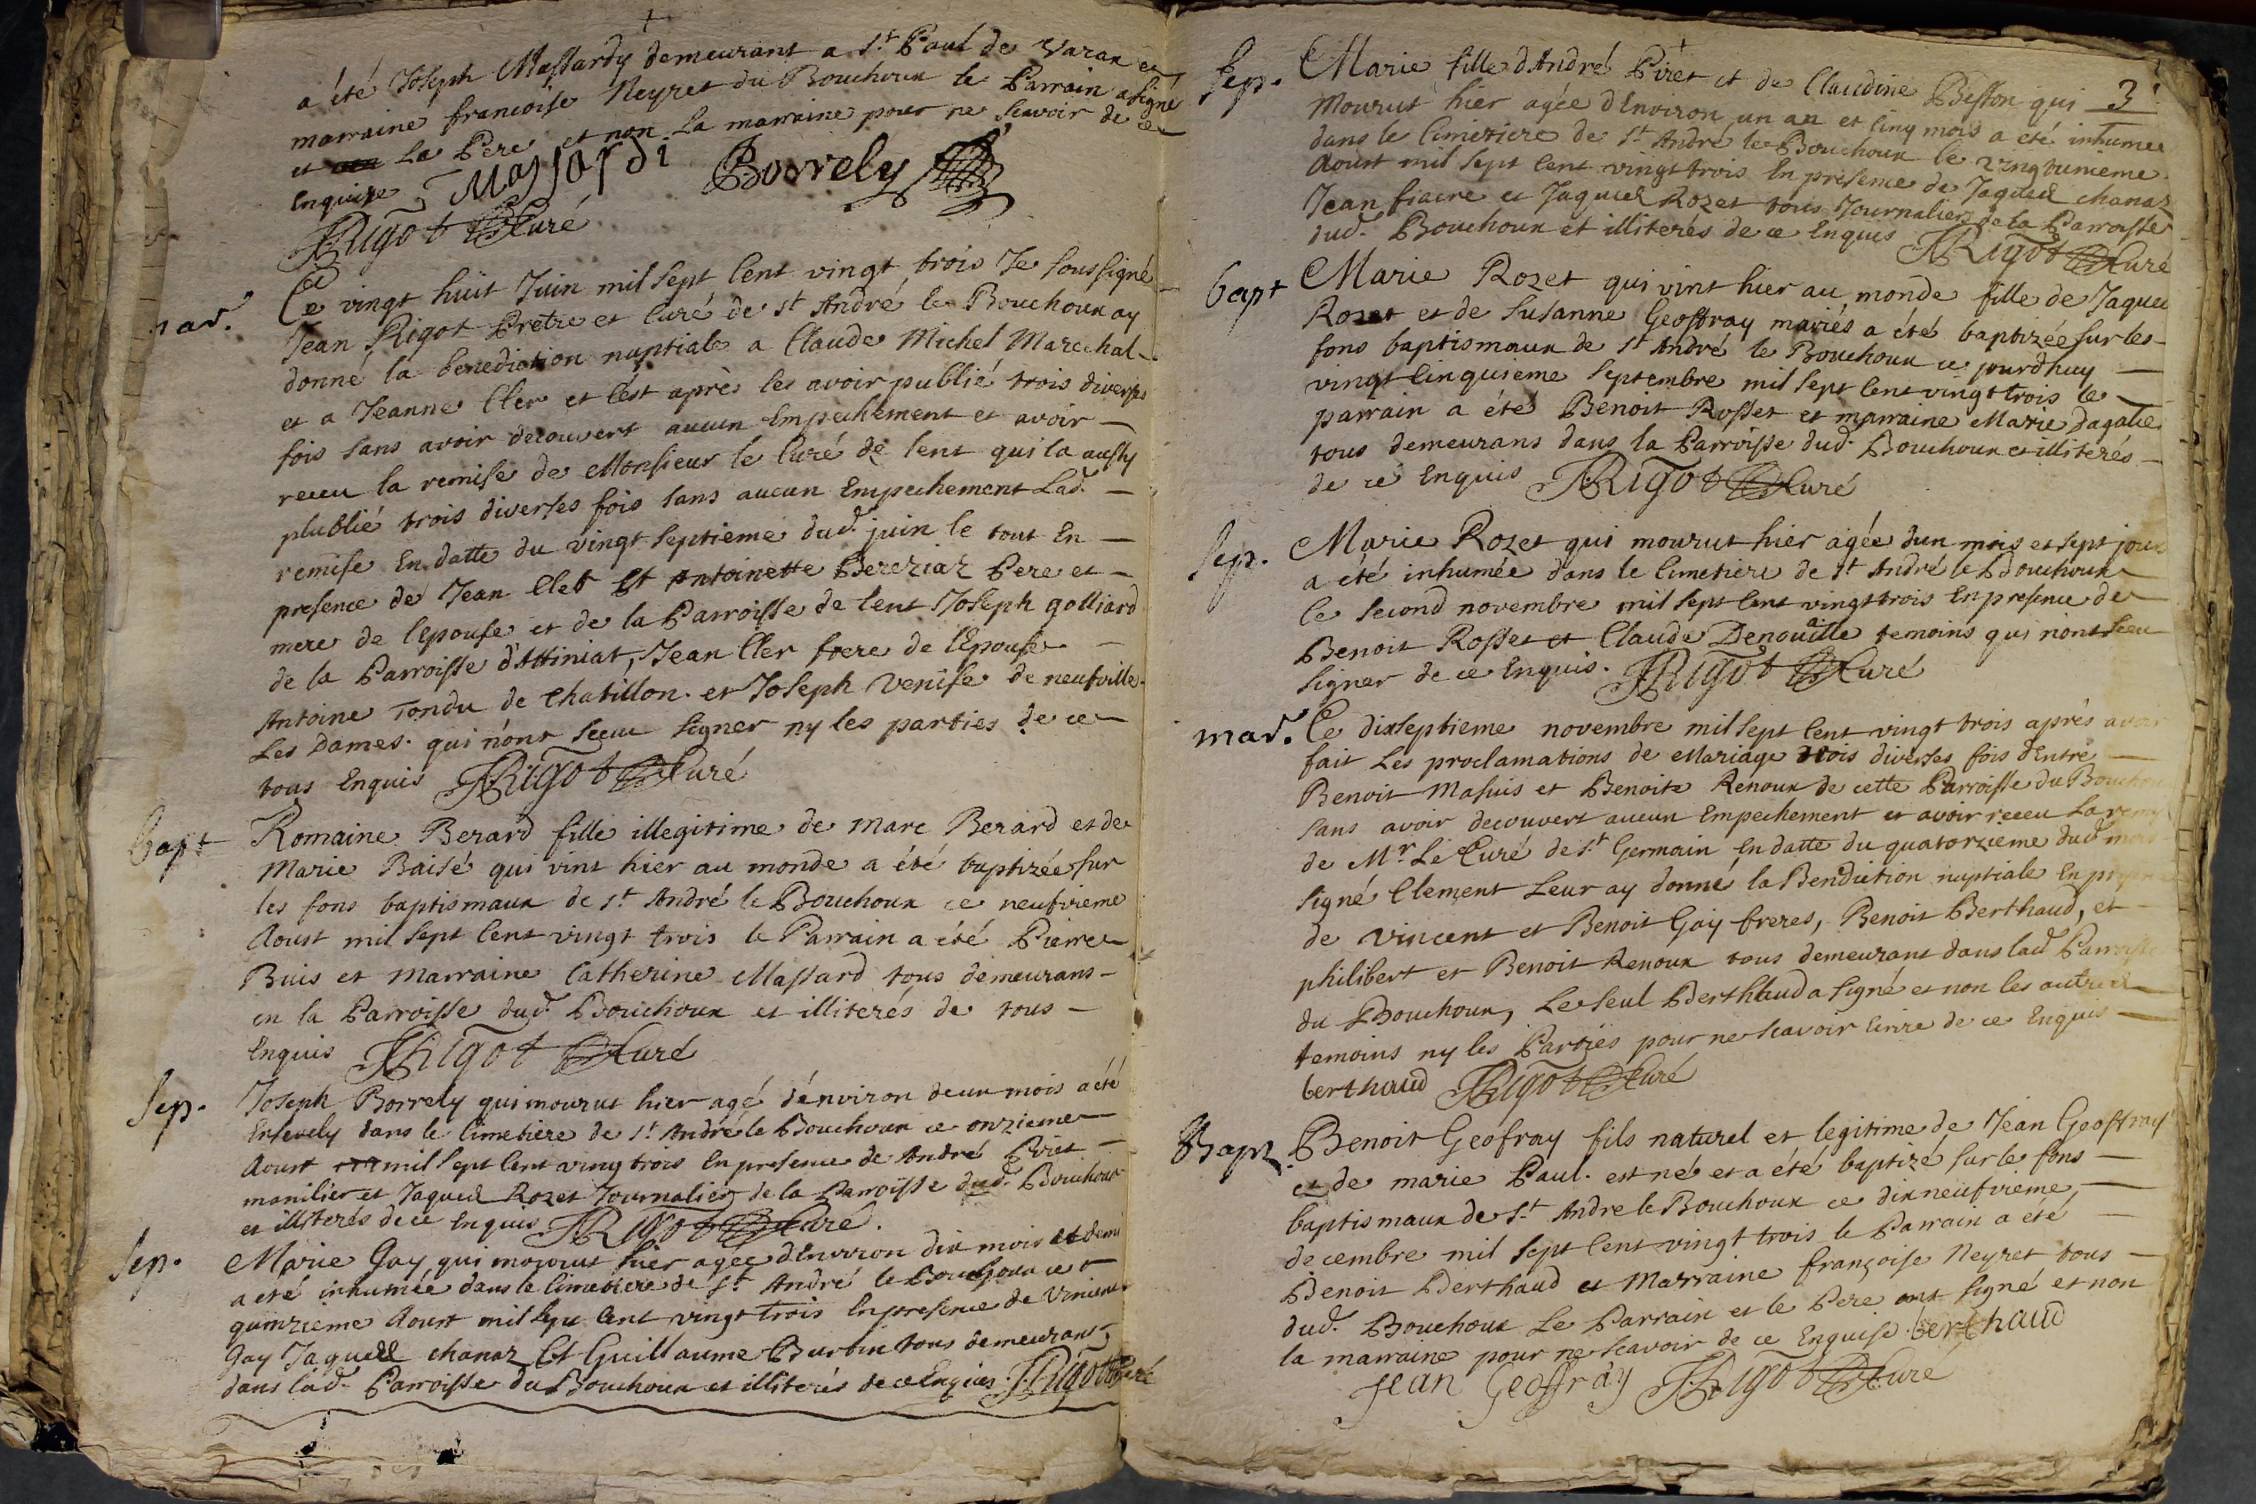 a été Joseph Massardy demeurant a St Paul de Varax et
marraine francoise Neyret du Bouchoux le Parrain a signé
et Le Pere et non La marraine pour ne scavoir de ce
Enquise Massardi Borrely
JRigot Curé
mar. Ce vingt huit Juin mil sept Cent vingt trois Je soussigné
Jean Rigot Pretre et Curé de St André le Bouchoux ay
donné la benediction nuptiale a Claude Michel Marechal
et a Jeanne Cler et c'est après les avoir publié trois diverses
fois sans avoir decouvert aucun Empechement et avoir
receu la remise de Monsieur le Curé de lent qui la aussy
plublié trois diverses fois sans aucun Empechement Lad.
remise En datte du vingt septieme dud. juin le tout En
presence de Jean Cler Et Antoinette Bereziaz Pere et
mere de l'Epouse et de la Parroisse de lent Joseph golliard
de la Parroisse d'Attiniat, Jean Cler frere de l'Epouse
Antoine Tondu de Chatillon. et Joseph Venise de neufville
Les Dames. qui n'ont sceu signer ny les parties de ce
tous Enquis JRigot Curé
bapt Romaine Berard fille illegitime de Marc Berard et de
Marie Baisé qui vint hier au monde a été baptizée sur
les fons baptismaux de St André le Bouchoux ce neufvieme
Aoust mil sept Cent vingt trois le Parrain a été Pierre
Buis et Marraine Catherine Massard tous demeurans
en la Parroisse dud. Bouchoux et illiterés de tous
Enquis JRigot Curé
Sep. Joseph Borrely qui mourut hier agé d'énviron deux mois a été
Ensevely dans le Cimetiere de St André le Bouchoux ce onzieme
Aoust mil sept Cent ving trois En presence de André Piret
manilier et Jaques Rozet Journalier de la Parroisse dud. Bouchoux
et illiterés de ce Enquis JRigot Curé.
Sep. Marie Gay qui mourut hier agée d'Environ dix mois et demi
a eté inhumée dans le Cimetiere de St André le Bouchoux ce
quinzieme Aoust mil sept Cent vingt trois En presence de Vincent
Gay Jaques chanaz Et Guillaume Burtin tous demeurans
dans lad. Parroisse du Bouchoux et illiterés de ce Enquis JRigot Curé
3
Sep. Marie fille d'André Piret et de Claudine Besson qui
Mourut hier agée d'Environ un an et Cinq mois a eté inhumée
dans le Cimetiere de St André le Bouchoux le vingtunieme
Aoust mil sept Cent vingt trois En présence de Jaques chanaz
Jean fiacre et Jaques Rozet tous Journaliers de la Parroisse
dud. Bouchoux et illiterés de ce Enquis JRigot Curé
bapt Marie Rozet qui vint hier au monde fille de Jaques
Rozet et de Susanne Geoffray mariés a été baptizée sur les
fons baptismaux de St André le Bouchoux ce jourdhuy
vingt Cinquieme Septembre mil sept Cent vingt trois le
parrain a été Benoit Rosset et marraine Marie Dagalie
tous demeurans dans la Parroisse dud. Bouchoux et illiterés
de ce Enquis JRigot Curé
Sep. Marie Rozet qui mourut hier agée d'un mois et sept jours
a été inhumée dans le Cimetiere de St André le Bouchoux
le second novembre mil sept Cent vingt trois En presence de
Benoit Rosset et Claude Denouaille temoins qui n'ont sceu
signer de ce Enquis. JRigot Curé
mar. Ce dixseptieme novembre mil sept Cent vingt trois après avoir
fait Les proclamations de Mariage trois diverses fois d'Entre
Benoit Masuis et Benoite Renoux de cette Parroisse du Bouchoux
sans avoir decouvert aucun Empechement et avoir receu La remise
de Mr Le Curé de St Germain En datte du quatorzieme dud mois
signé Clement Leur ay donné la Benediction nuptiale En presence
de Vincent et Benoit Gay freres, Benoit Berthaud, et
philibert et Benoit Renoux tous demeurant dans lad Parroisse
du Bouchoux, Le seul Berthaud a signé et non les autres
temoins ny les Parties pour ne scavoir Ecrire de ce Enquis
berthaud JRigot Curé
Bapt. Benoit Geofray fils naturel et legitime de Jean Geoffray
et de marie Paul. est né et a été baptizé sur le fons
baptismaux de St Andre le Bouchoux ce dixneufvieme
decembre mil sept Cent vingt trois le Parrain a eté
Benoit Berthaud et Marraine françoise Neyret tous
dud. Bouchoux Le Parrain et le Pere ont signé et non
la marraine pour ne scavoir de ce Enquise. berthaud
Jean Geoffray JRigot Curé